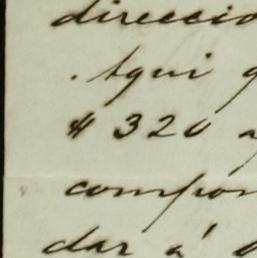 direccio
Aqui g
$ 320 a
compon
dar á